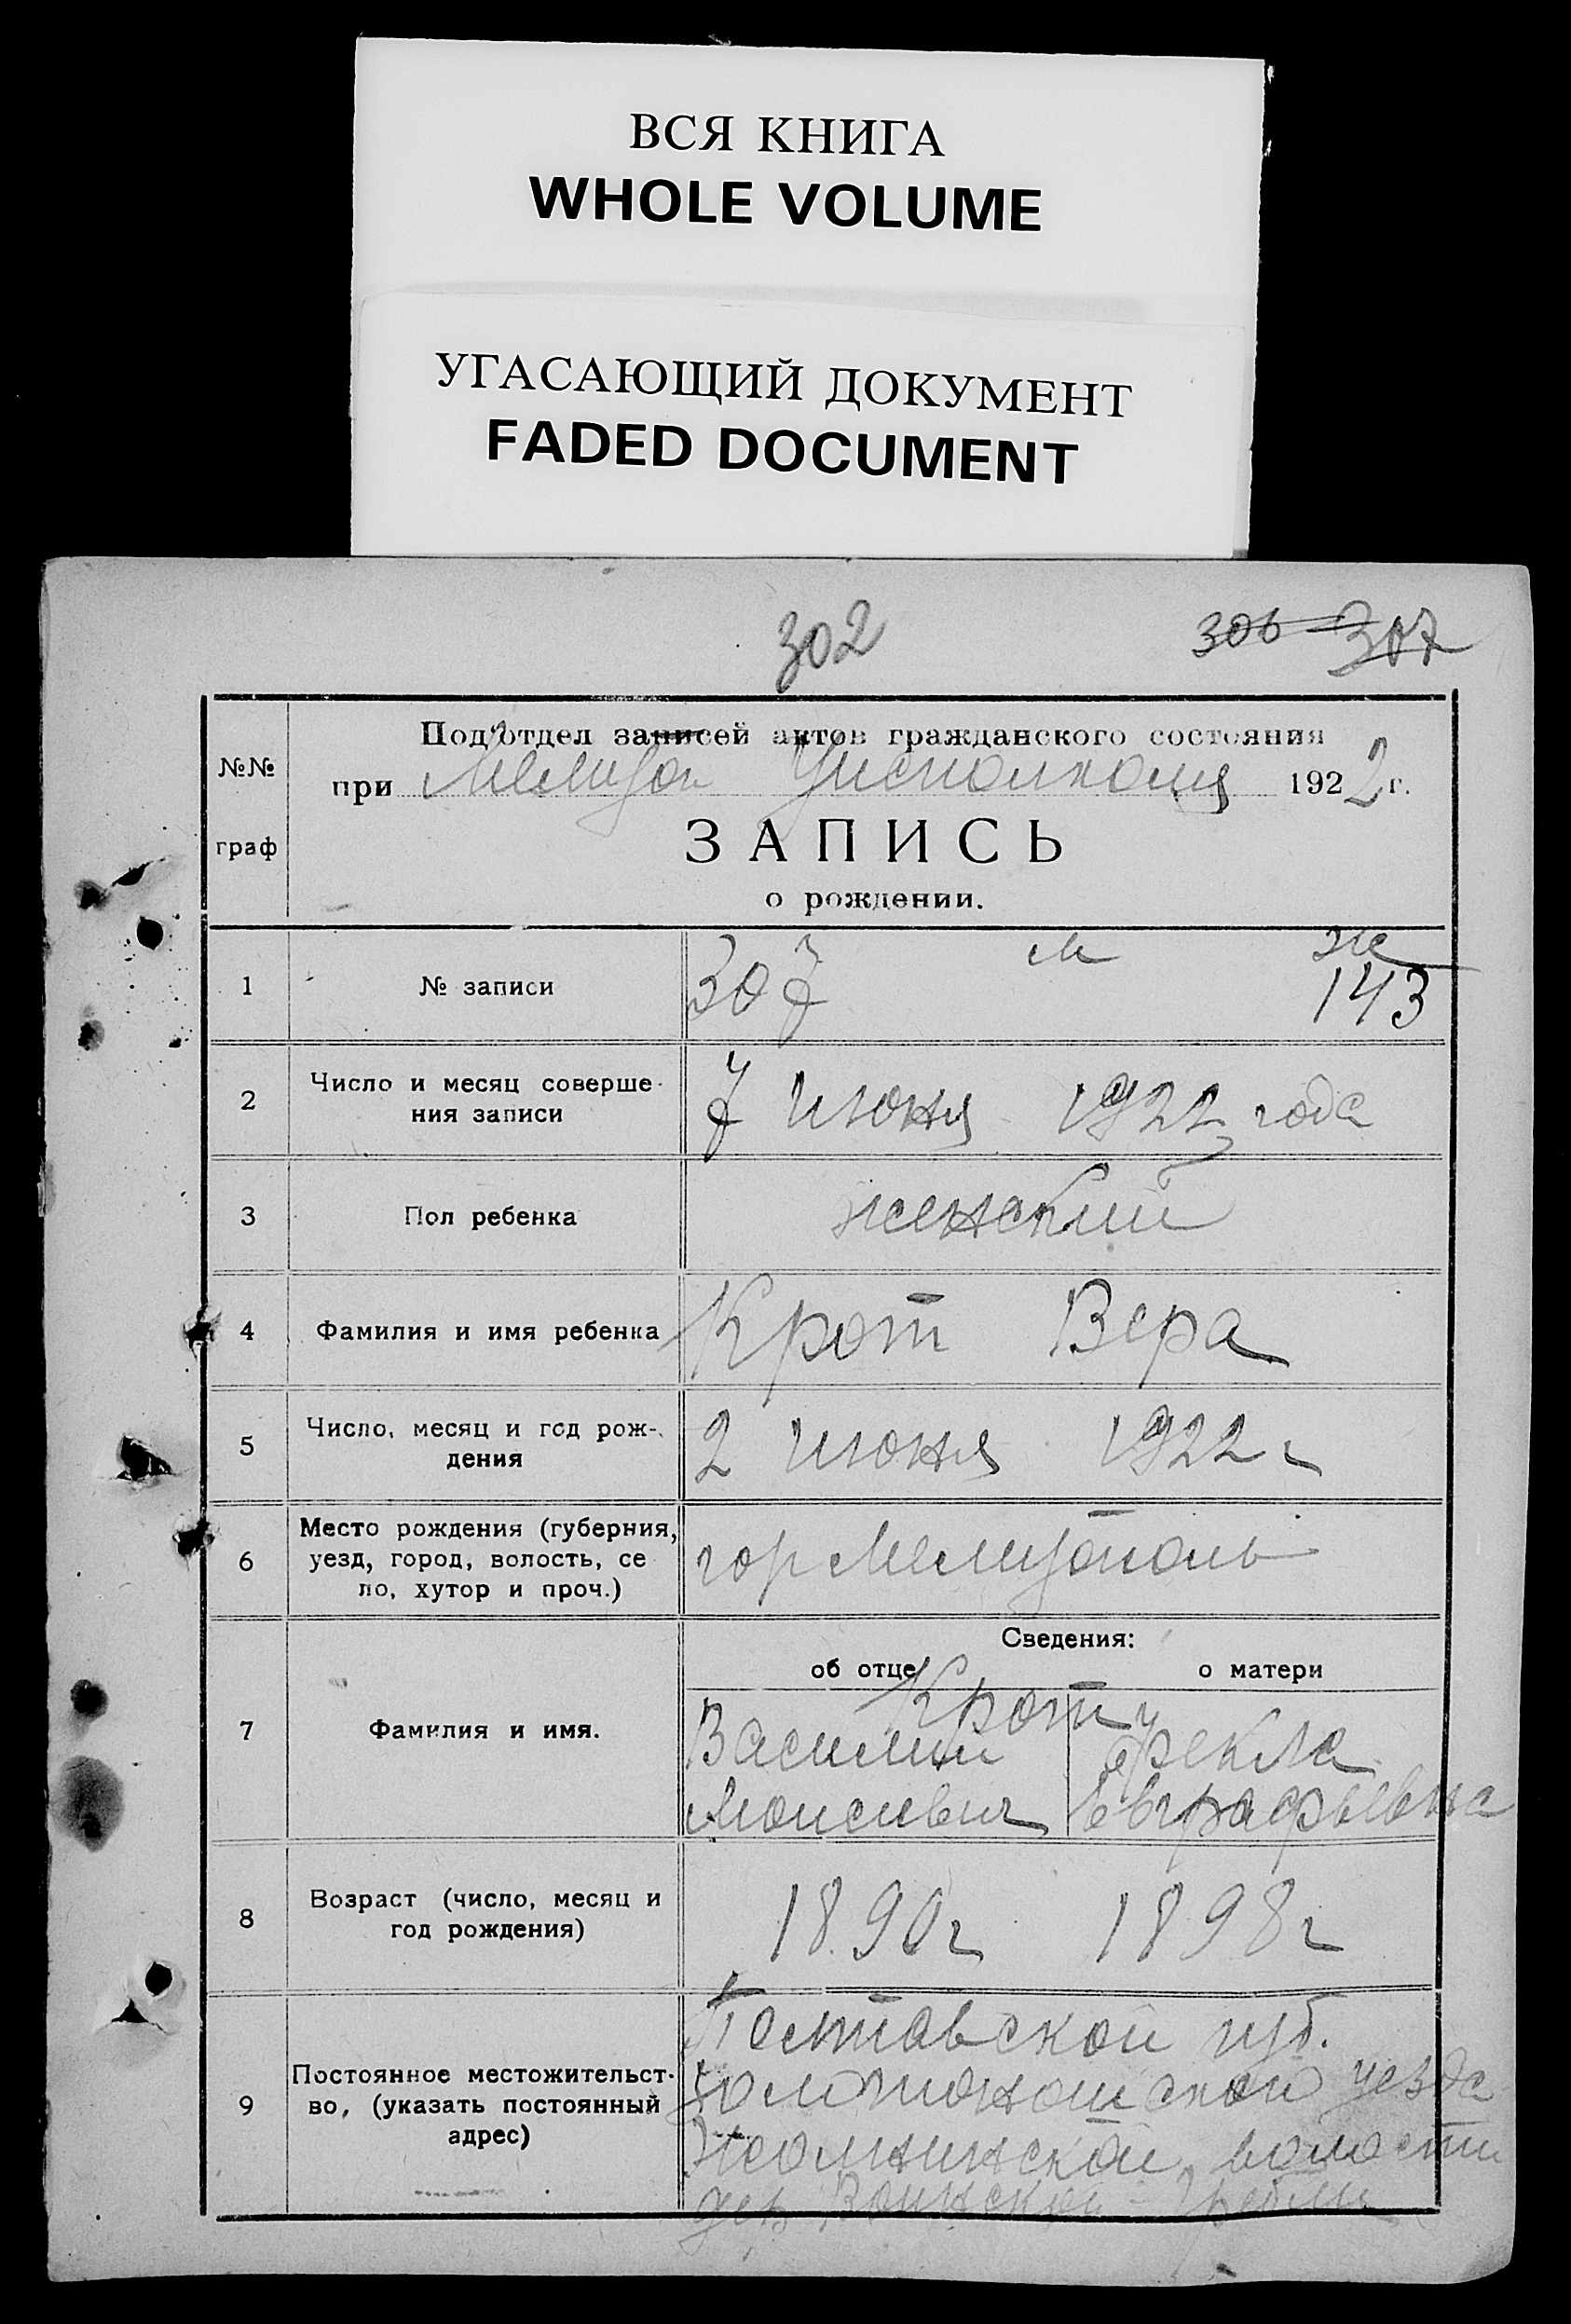 ВСЯ КНИГА
WHOLE VOLUME
УГАСАЮЩИЙ ДОКУМЕНТ
FADED DOCUMENT
302 306 307
Под'отдел записей актов гражданского состояния
№№ при Мелитоп Уисполкома 1922 г.
граф
ЗАПИСЬ
о рождении.
м ж
1 № записи 307 143
2 Число и месяц соверше-
ния записи 7 июня 1922 года
3 Пол ребенка женский
4 Фамилия и имя ребенка Крот Вера
5 Число, месяц и год рож-
дения 2 июня 1922 г
6 Место рождения (губерния,
уезд, город, волость, се
ло, хутор и проч.) гор Мелитополь
Сведения:
об отце о матери
Крот
7 Фамилия и имя. Василий Фекла
Моисеевич Евграфьевна
8 Возраст (число, месяц и
год рождения) 1890 г 1898 г
Полтавской губ.
9 Постоянное местожительст-
во, (указать постоянный
адрес) Золотоношской уезда
волости
дер. Воинской Гребли